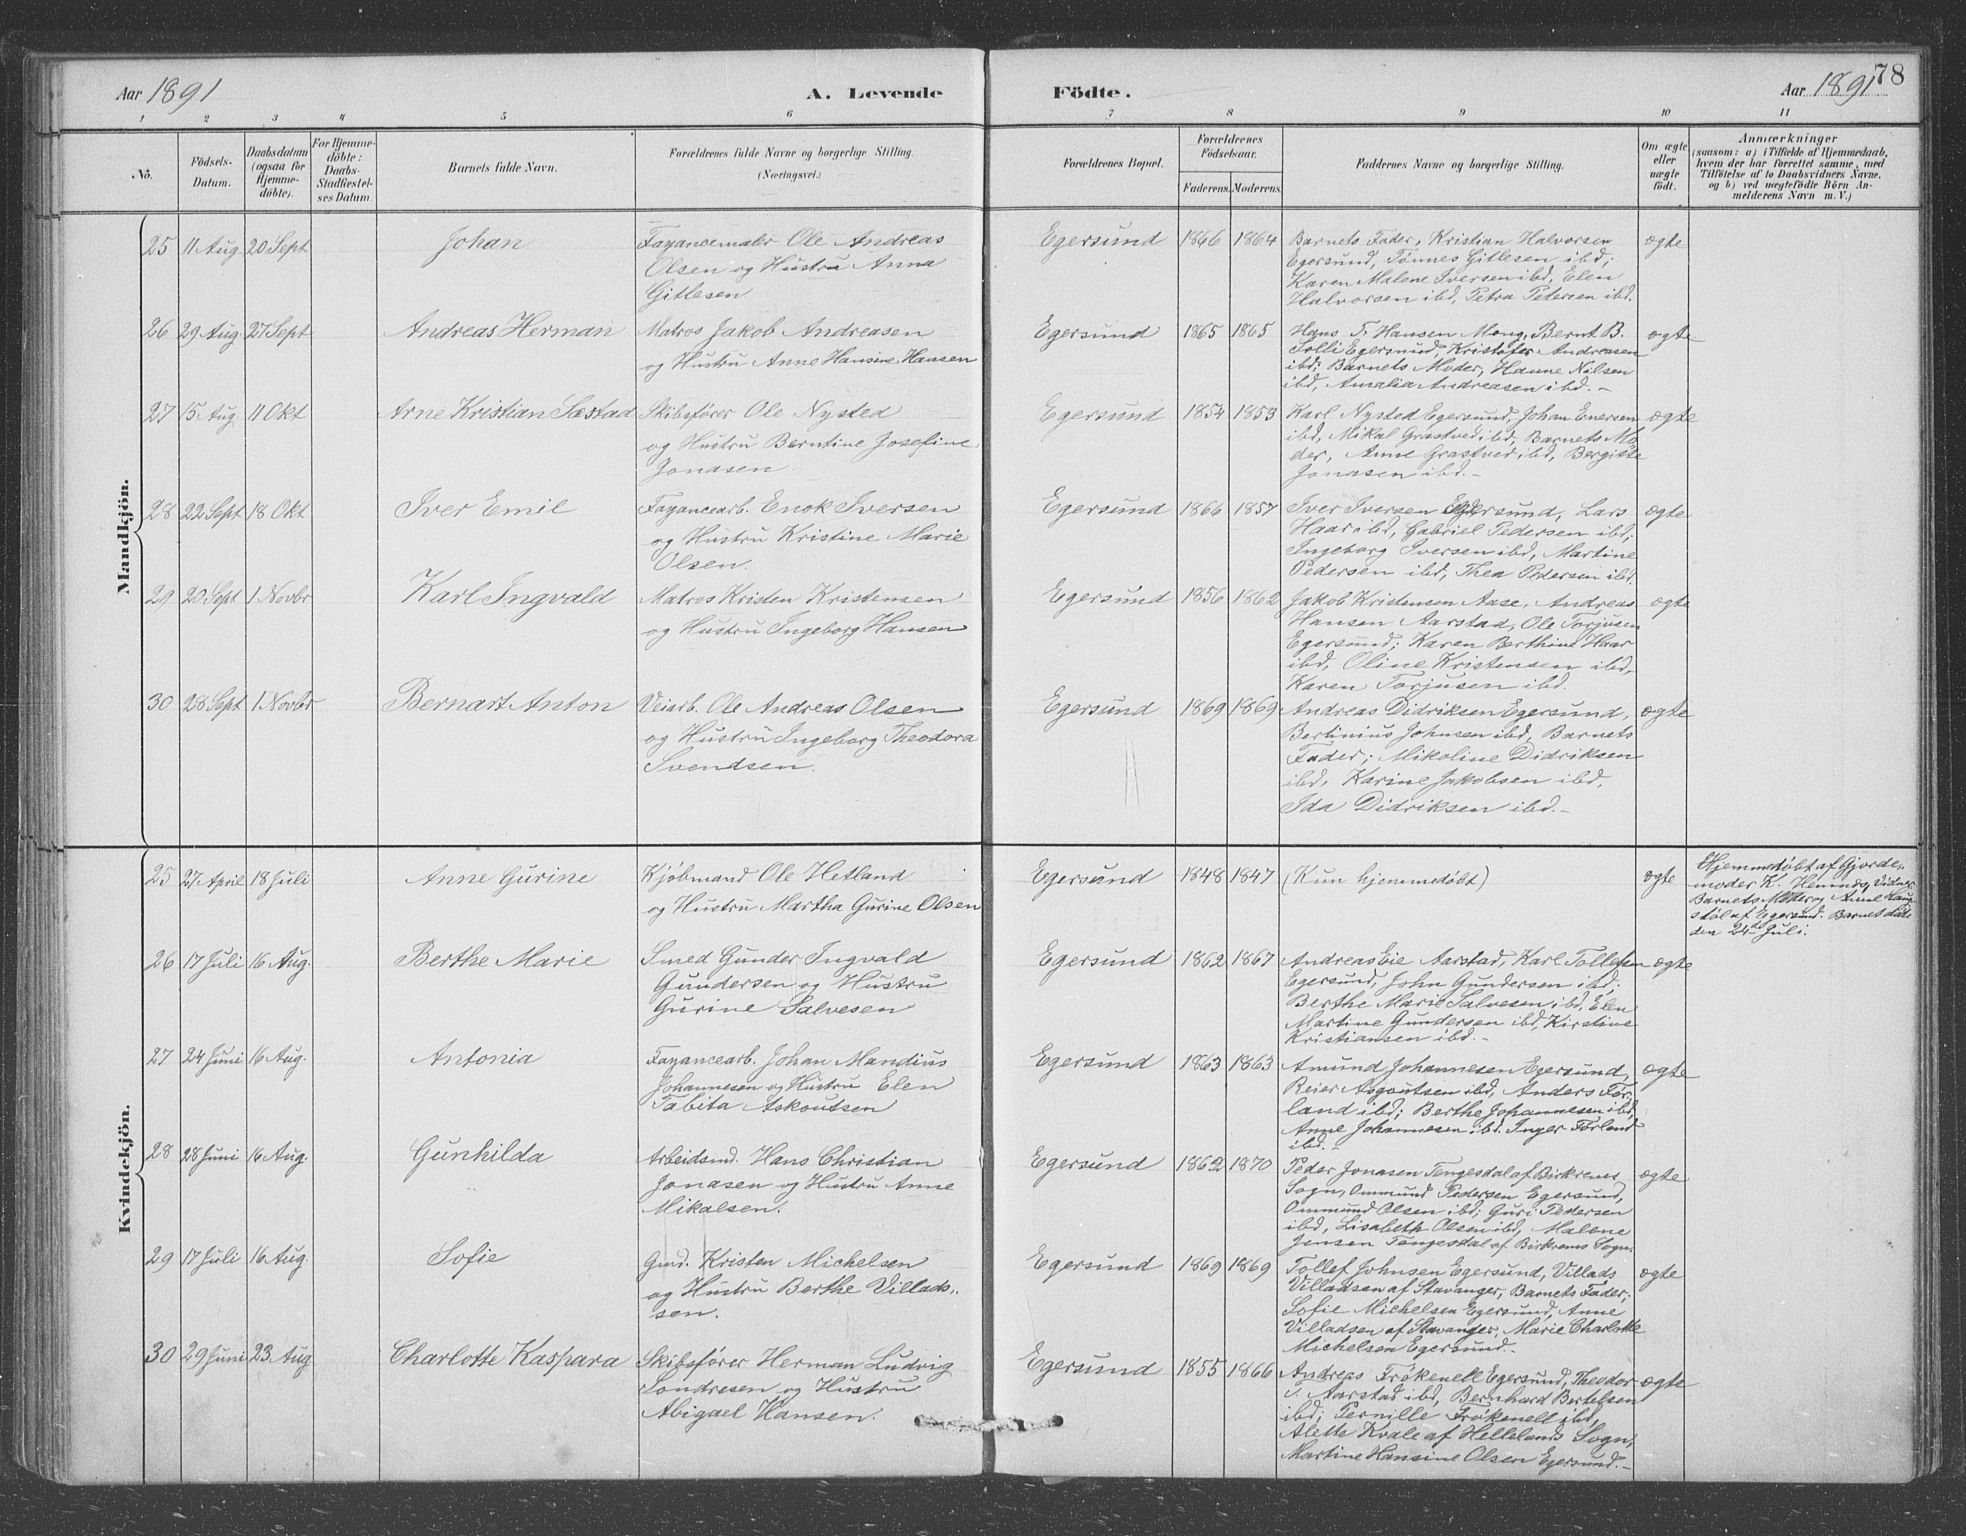 Aar 1891
A. Levende Födte.
Aar 1891
78
1 2 3 4 5 6 7 8 9 10 11
No.
Födsels-Datum.
Daabsdatum (ogsaa for Hjemme-döbte).
For Hjemme-döbte: Daabs-Stadfæstel-ses Datum.
Barnets fulde Navn.
Forældrenes fulde Navne og borgerlige Stilling. (Næringsvei.)
Forældrenes Bopæl.
Forældrenes Födselsaar.
Faderens. Moderens.
Faddernes Navne og borgerlige Stilling.
Om ægte eller uægte födt.
Anmærkninger
(saasom: a) i Tilfælde af Hjemmedaab,
hvem der har forrettet samme, med
Tilföielse af to Daabsvidners Navne,
og b) ved uægtefödte Börn An-
melderens Navn m. V.)
Mandkjön.
25 11 Aug 20 Sept Johan
Fayancemaler Ole Andreas
Olsen og Hustru Anna
Gitlesen
Egersund 1866 1864
Barnets Fader, Kristian Halvorsen
Egersund, Tönnes Gitlesen ibd;
Karen Malene Iversen ibd, Elen
Halvorsen ibd, Petra Petersen ibd.
ægte
26 29 Aug 27 Sept Andreas Herman
Matros Jakob Andreasen
og Hustru Anne Hansine Hansen
Egersund 1865 1865
Hans T. Hansen Mong, Bernt B.
Solli Egersund, Kristofer Andreasen
ibd; Barnets Moder, Hanne Nilsen
ibd, Amalia Andreasen ibd. –
ægte
27 15 Aug 11 Okt Arne Kristian Sæstad
Skibsförer Ole Nysted
og Hustru Berntine Josefine
Jonasen
Egersund 1854 1853
Karl Nysted Egersund, Johan Enersen
ibd, Mikal Grastved ibd, Barnets Mo
der, Anne Grastved ibd, Bergitte
Jonasen ibd. –
ægte
28 22 Sept 18 Okt Iver Emil
Fayancearb. Enok Iversen
og Hustru Kristine Marie
Olsen.
Egersund 1866 1857
Iver Iversen Egersund, Lars
Haar ibd, Gabriel Pedersen ibd;
Ingeborg Iversen ibd, Martine
Pedersen ibd, Thea Pedersen ibd.
ægte
29 20 Sept 1 Novbr Karl Ingvald
Matros Kristen Kristensen
og Hustru Ingeborg Hansen
Egersund 1856 1862
Jakob Kristensen Aase, Andreas
Hansen Aarstad, Ole Torjusen
Egersund; Karen Berthine Haar
ibd, Oline Kristensen ibd,
Karen Torjusen ibd.
ægte
30 28 Sept 1 Novbr Bernart Anton
Veiarb. Ole Andreas Olsen
og Hustru Ingeborg Theodora
Svendsen.
Egersund 1869 1869
Andreas Didriksen Egersund,
Bertinius Johnsen ibd, Barnets
Fader; Mikoline Didriksen
ibd, Karine Jakobsen ibd,
Ida Didriksen ibd. –
ægte
Kvindekjön.
25 27 April 18 Juli Anne Gurine
Kjöbmand Ole Hetland
og Hustru Martha Gurine Olsen
Egersund 1848 1847
(Kun hjemmedöbt)
ægte
Hjemmedöbt af Gjorde-
moder K. Vidner
Barnets Moder og Anne
af Egersund. Barnet
24de Juli.
26 17 Juli 16 Aug. Berthe Marie
Smed Gunder Ingvald
Gundersen og Hustru
Gurine Salvesen
Egersund 1862 1867
Andreas Eie Aarstad, Karl Tollefsen
Egersund, John Gundersen ibd;
Berthe Marie Salvesen ibd, Elen
Martine Gundersen ibd, Kirstine
Kristiansen ibd. –
ægte
27 24 Juni 16 Aug. Antonia
Fayancearb. Johan Mandius
Johannesen og Hustru Elen
Tabita Askoutsen
Egersund 1863 1863
Amund Johannesen Egersund,
Reier Asgoutsen ibd, Anders För-
land ibd; Berthe Johannesen ibd,
Anne Johannesen ibd. Inger Förland
ibd. –
ægte
28 28 Juni 16 Aug. Gunhilda
Arbeidsmd. Hans Christian
Jonasen og Hustru Anne
Mikalsen.
Egersund 1862 1870
Peder Jonasen Tengesdal af Birkrems
Sogn, Ommund Pedersen Egersund,
Ommund Olsen ibd; Guri Pedersen
ibd, Lisabeth Olsen ibd, Malene
Jensen Tengesdal af Birkrems Sogn.
ægte
29 17 Juli 16 Aug. Sofie
Gmd. Kristen Michelsen
og Hustru Berthe Villads-
sen.
Egersund 1869 1869
Tollef Johnsen Egersund, Villads
Villadsen af Stavanger, Barnets Fader;
Sofie Michelsen Egersund, Anne
Villadsen af Stavanger, Marie Charlotte
Michelsen Egersund. –
ægte
30 29 Juni 23 Aug Charlotte Kaspara
Skibsförer Herman Ludvig
Sondresen og Hustru
Abigael Hansen.
Egersund 1855 1866
Andreas Frökenell Egersund, Theodor
T. Aarstad ibd, Bernhard Bertelsen
ibd; Pernille Frökenell ibd,
Alette Kvale af Hellelands Sogn,
Martine Hansine Olsen Egersund. –
ægte